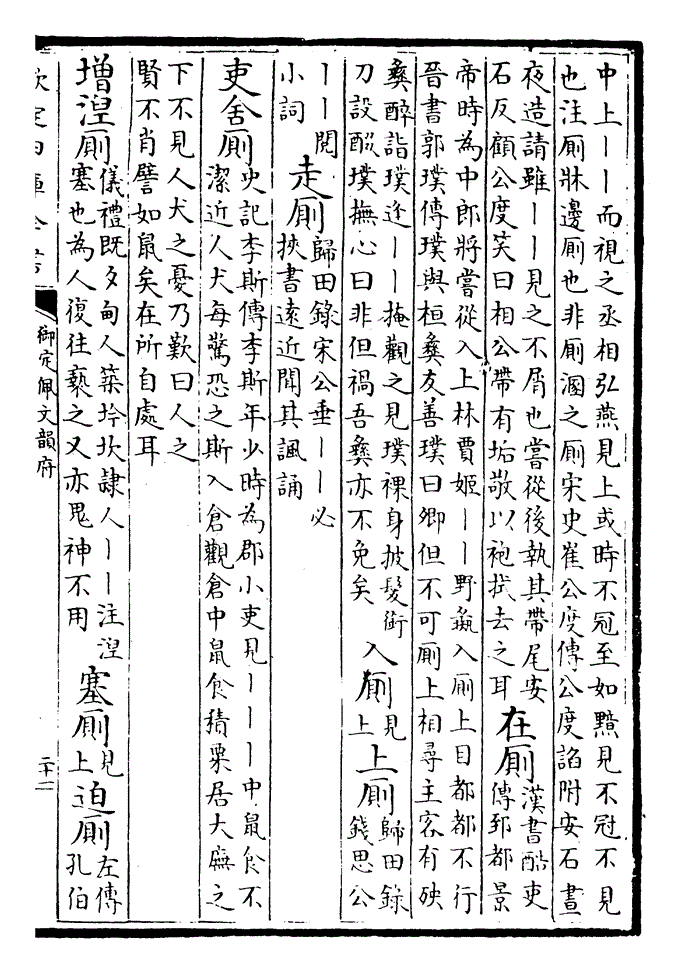 中上丨丨而視之丞相弘燕見上或時不冠至如黯見不冠不見
也注廁牀邊廁也非廁溷之廁宋史崔公度傳公度諂附安石晝
夜造請雖丨丨見之不屑也嘗從後執其帶尾安
石反顧公度笑曰相公帶有垢敬以袍拭去之耳
在廁
漢書酷吏
傳郅都景
帝時為中郎將嘗從入上林賈姬丨丨野彘入廁上目都都不行
晉書郭璞傳璞與桓彝友善璞曰卿但不可廁上相尋主客有殃
彝醉詣璞逢丨丨掩觀之見璞裸身披髮銜
刀設醊璞撫心曰非但禍吾彝亦不免矣
入廁
見
上
上廁
歸田錄
錢思公
丨丨閱
小詞
走廁
歸田錄宋公垂丨丨必
挾書遠近聞其諷誦
吏舍廁
史記李斯傳李斯年少時為郡小吏見丨丨丨中鼠食不
潔近人犬每驚恐之斯入倉觀倉中鼠食積粟居大廡之
下不見人犬之憂乃歎曰人之
賢不肖譬如鼠矣在所自處耳
增湼廁
儀禮既夕甸人築坅坎隸人丨丨注湼
塞也為人復往褻之又亦鬼神不用
塞廁
見
上
迫廁
左傳
孔伯
欽定四庫全書
御定佩文韻府
二十二